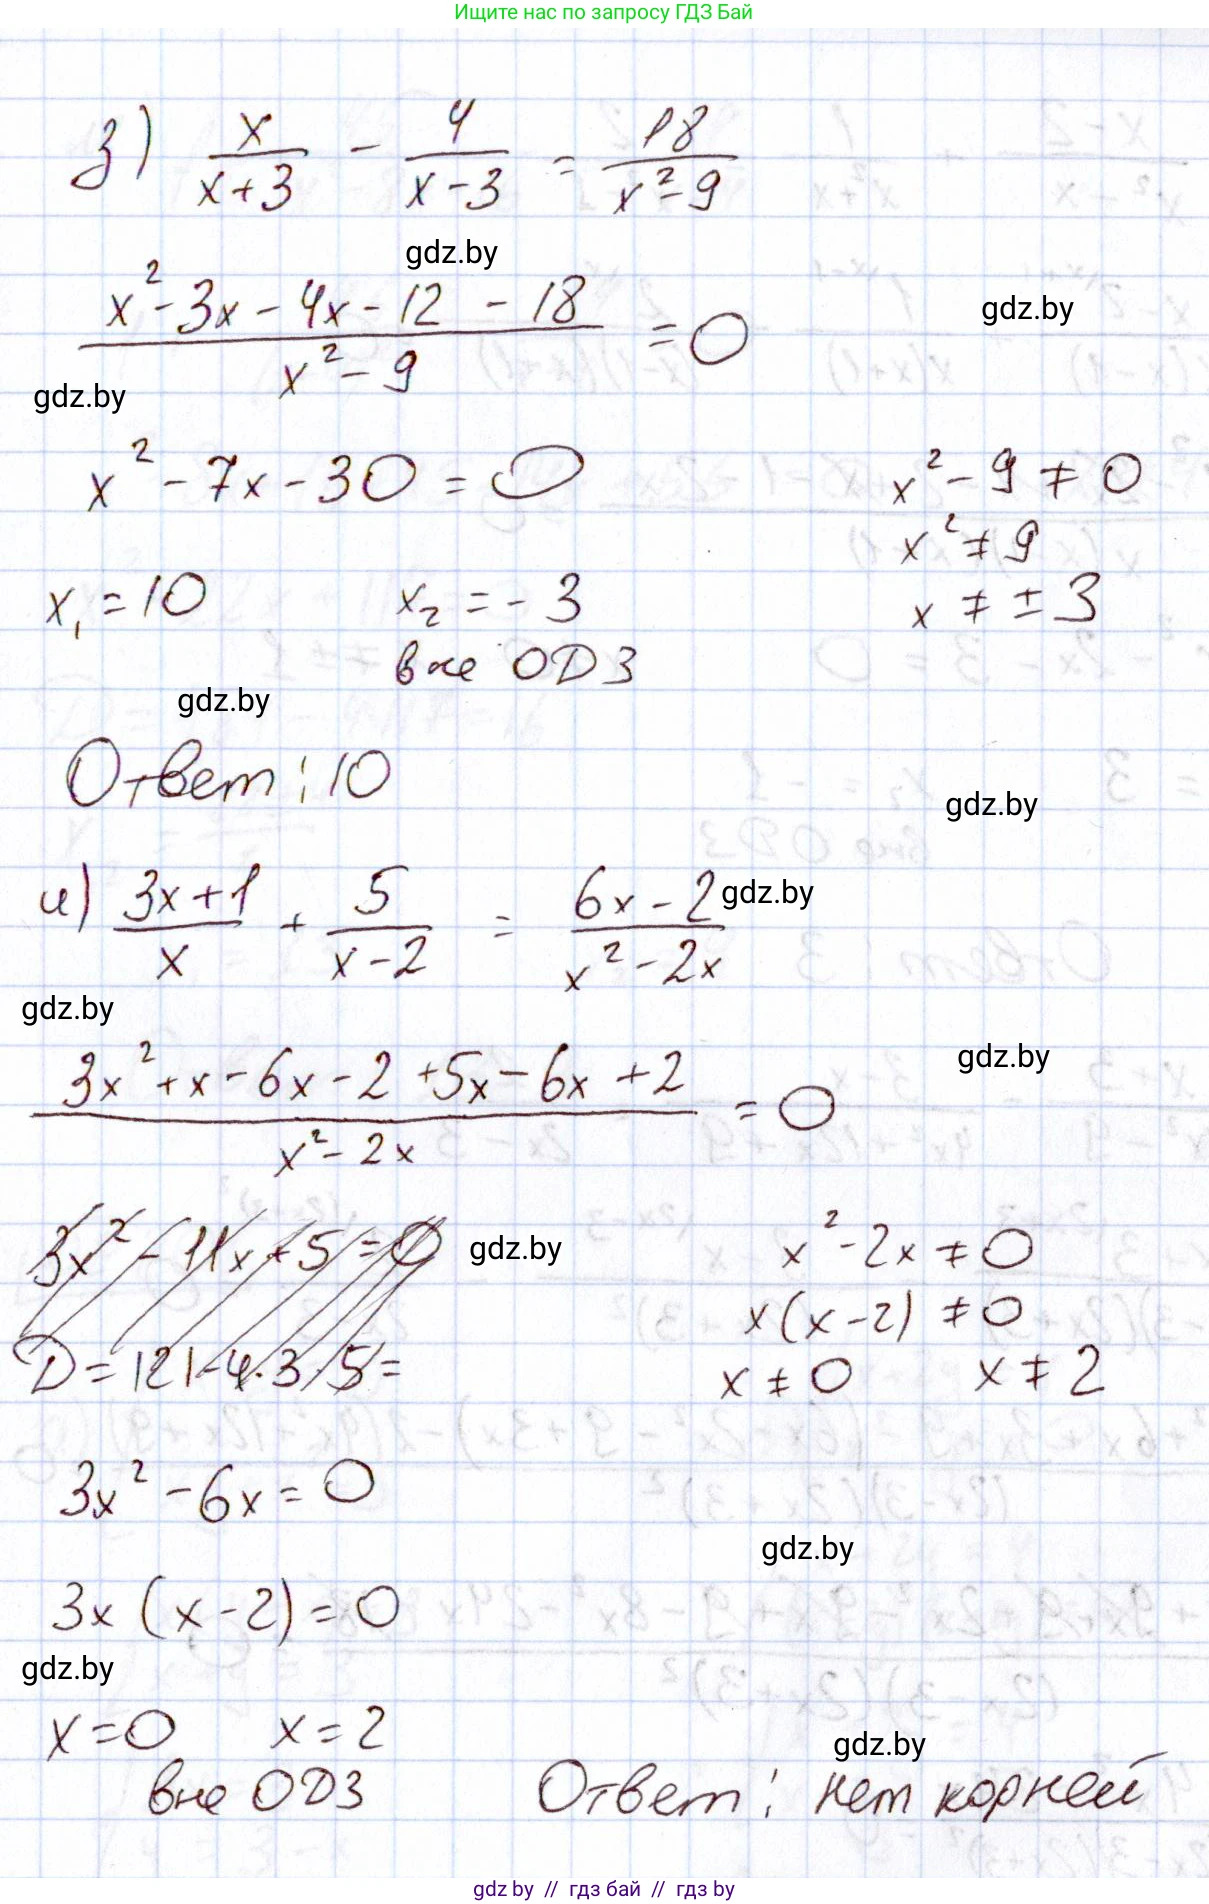 Ищите нас по запросу ГДЗ Бай
з) x/(x+3) - 4/(x-3) = 18/(x²-9)
gdz.by
(x²-3x-4x-12-18)/(x²-9) = 0
gdz.by
gdz.by
x²-7x-30=0
x²-9≠0
x²≠9
x₁=10 x₂=-3 x≠±3
вне ОДЗ
gdz.by
Ответ: 10
gdz.by
и) (3x+1)/x + 5/(x-2) = (6x-2)/(x²-2x)
gdz.by
gdz.by
gdz.by
(3x²+x-6x-2+5x-6x+2)/(x²-2x) = 0
3x²-11x+5=0
gdz.by
x²-2x≠0
x(x-2)≠0
D=121-4·3·5=
x≠0 x≠2
3x²-6x=0
gdz.by
3x(x-2)=0
gdz.by
x=0 x=2
gdz.by
вне ОДЗ
Ответ: нет корней
gdz.by // гдз бай // гдз by